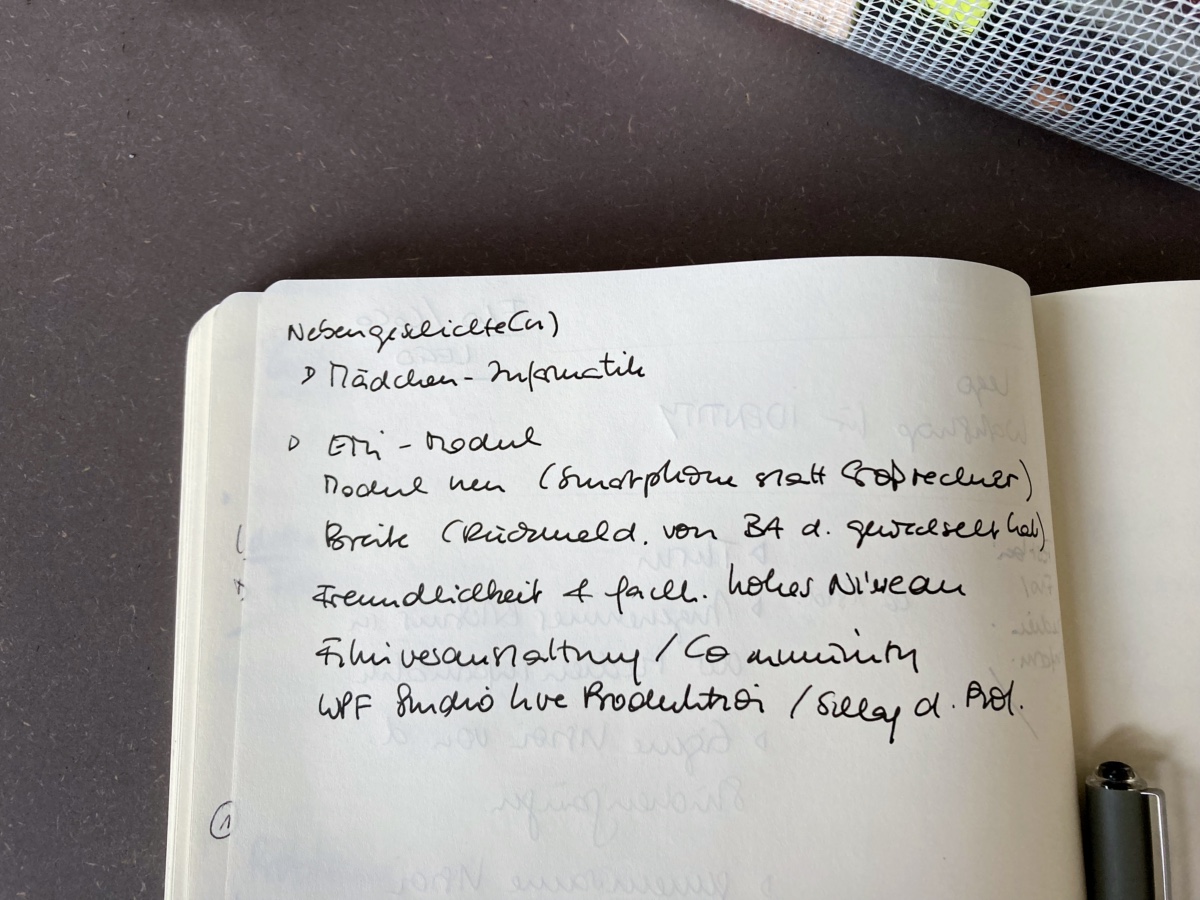 Nebengeschichte(n)
▷ Mädchen-Informatik
▷ ETHi-Modul
Modul neu (Smartphone statt Großrechner)
Breite (Rückmeld. von BA d. gewechselt hab)
Freundlichkeit & fachl. hohes Niveau
Filmiveranstaltung / Community
WPF Studio Live Produktion / d. Prof.
①